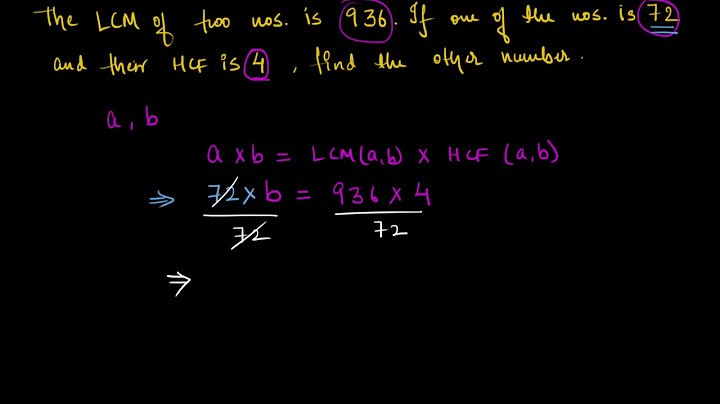 The LCM of two nos. is 936. If one of the nos. is 72
and their HCF is 4, find the other number.
a, b
a × b = LCM(a,b) × HCF (a,b)
⇒ 72 × b = 936 × 4
72 72
⇒